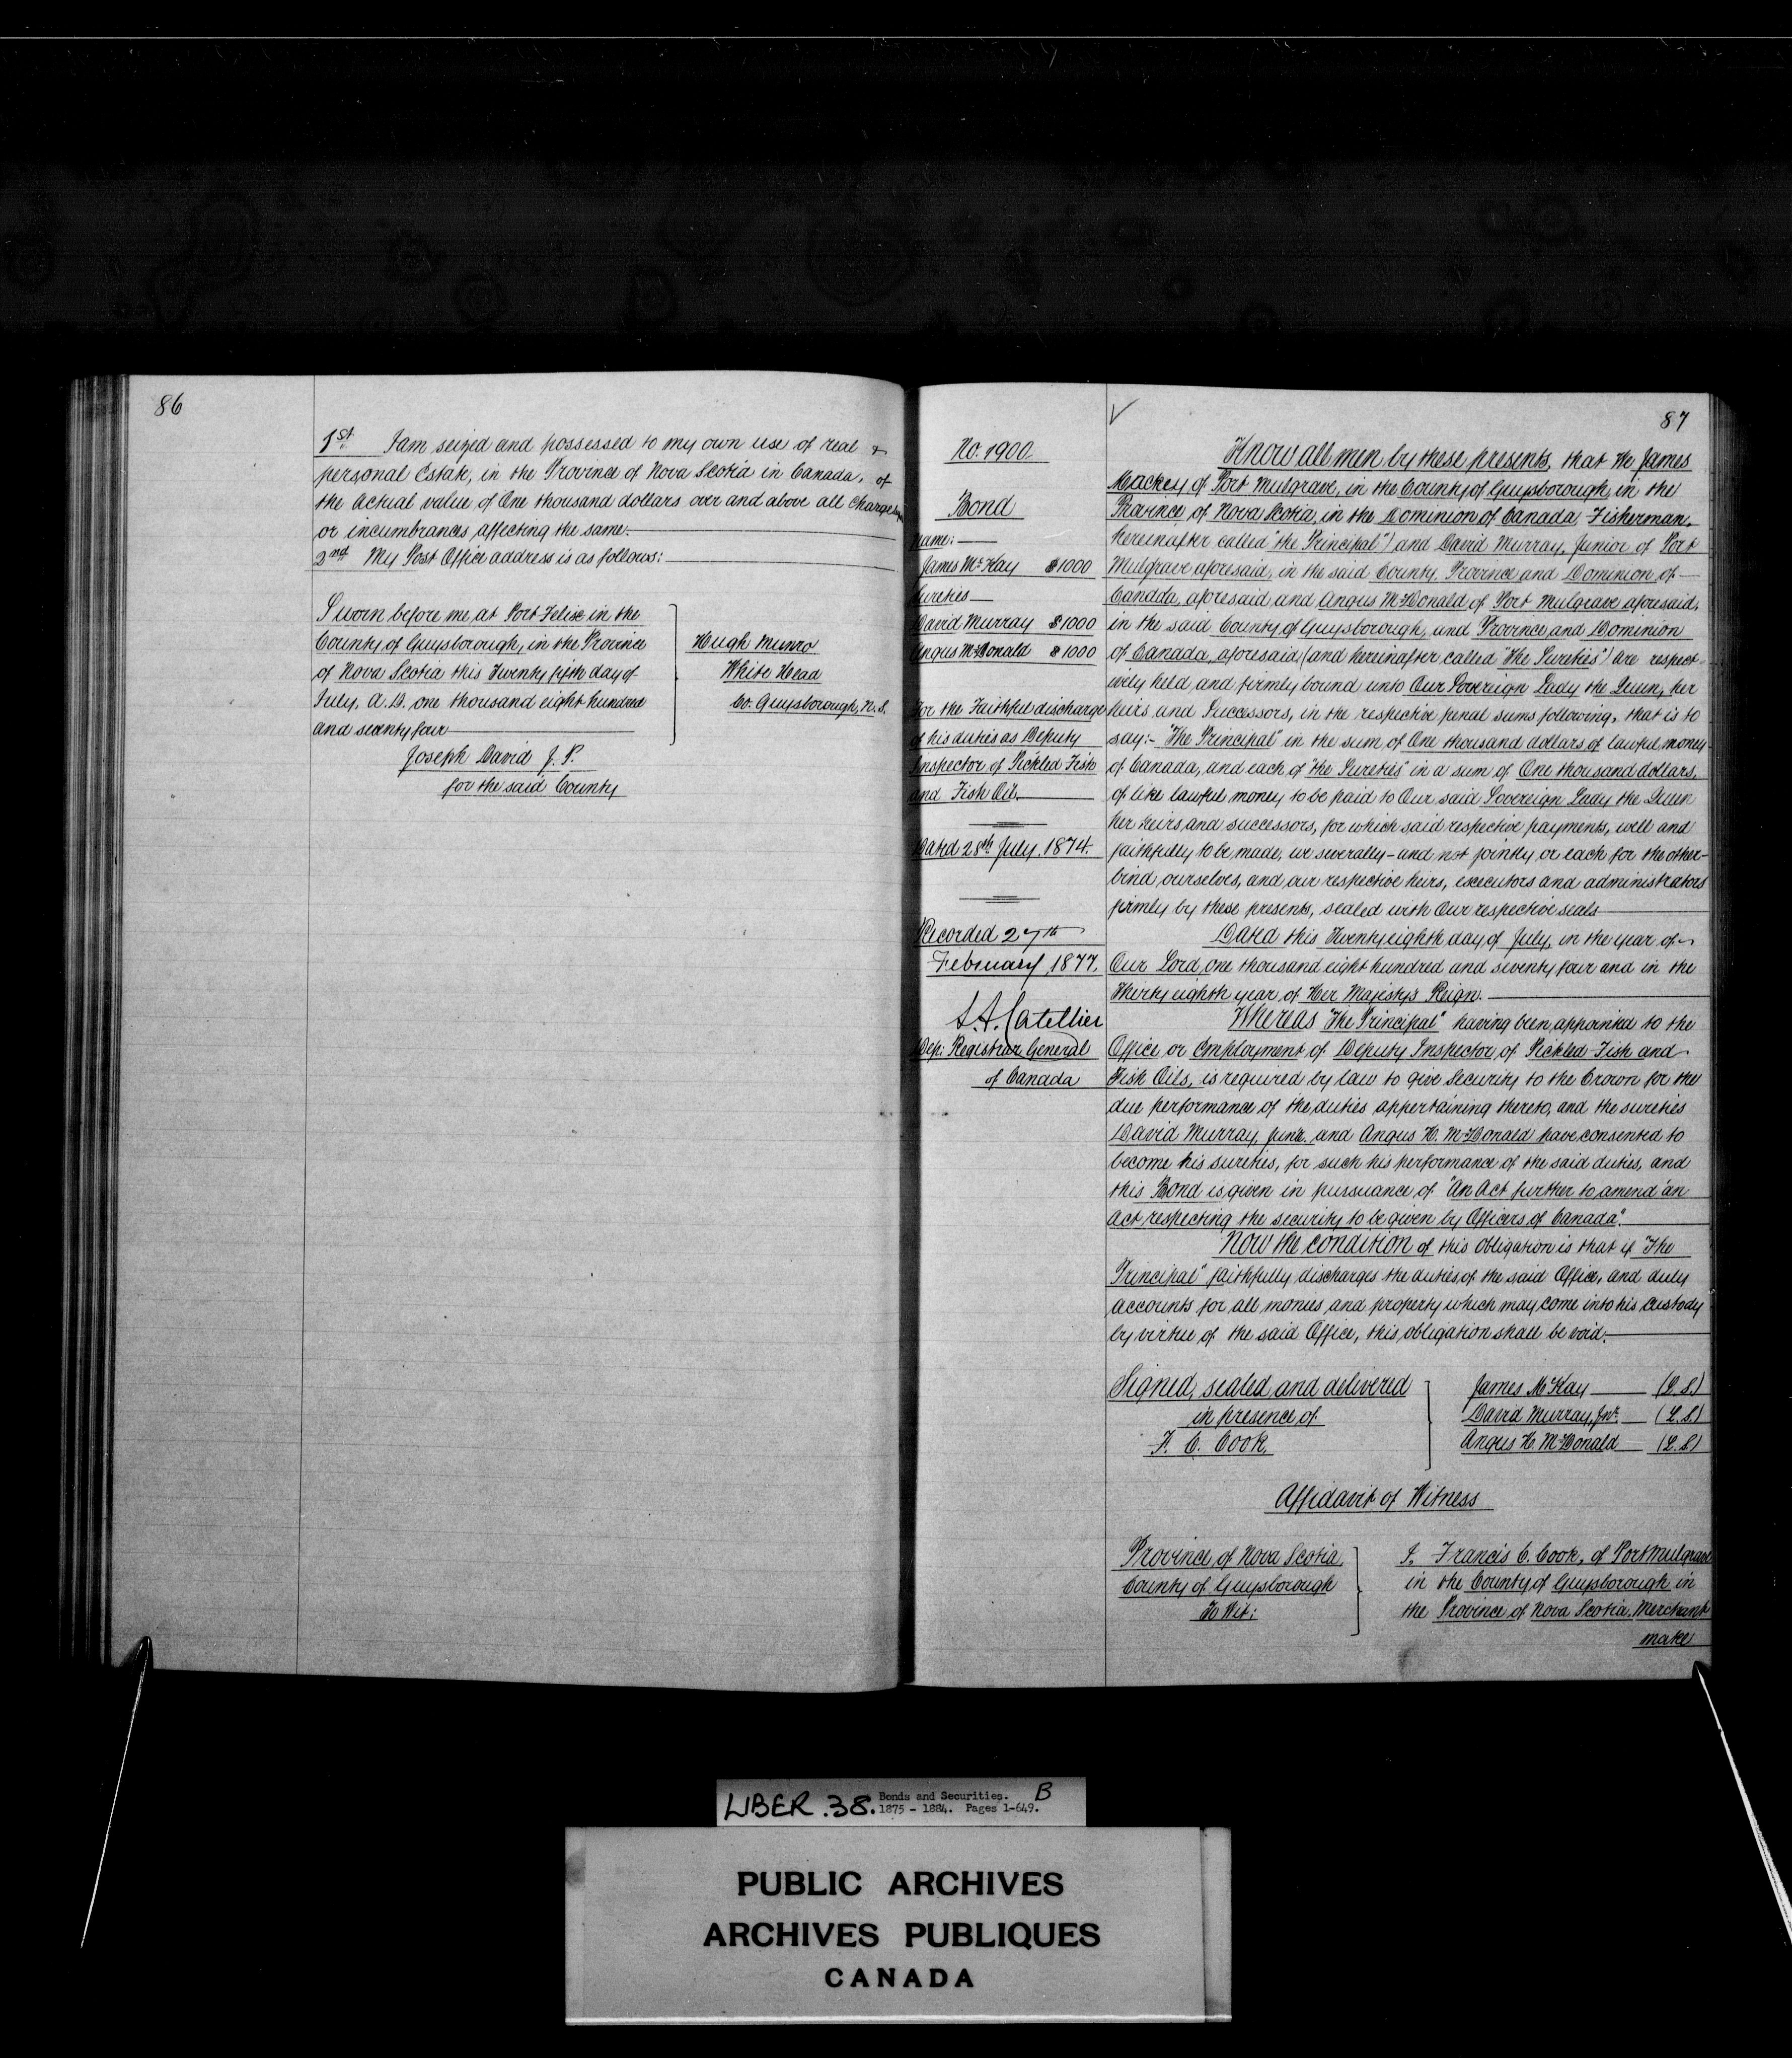 86
1st I am seized and possessed to my own use of real &
personal Estate, in the Province of Nova Scotia in Canada, of
the actual value of One thousand dollars over and above all charges
or incumbrances affecting the same.
2nd My Post Office address is as follows:
Sworn before me at Port Felise in the
County of Guysborough, in the Province
of Nova Scotia this Twenty fifth day of
July, A.D. one thousand eight hundred
and seventy four
Hugh Munro
White Head
Co. Guysborough, N.S.
Joseph David J.P.
for the said County
87
No. 1900
Bond
name:
James McKay $1000
Sureties
David Murray $1000
Angus McDonald $1000
For the Faithful discharge
of his duties as Deputy
Inspector of Pickled Fish
and Fish Oil.
Dated 28th July, 1874.
Recorded 27th
February, 1877.
Catellier
Dep: Registrar General
of Canada
Know all men by these presents, that We James
Mackey of Port Mulgrave, in the County of Guysborough, in the
Province of Nova Scotia, in the Dominion of Canada, Fisherman,
hereinafter called "the Principal") and David Murray, Junior of Port
Mulgrave aforesaid, in the said County, Province and Dominion of
Canada, aforesaid and Angus McDonald of Port Mulgrave aforesaid,
in the said County of Guysborough, and Province and Dominion
of Canada, aforesaid (and hereinafter called "the Sureties") are respect-
ively held, and firmly bound unto Our Sovereign Lady the Queen, her
heirs and Successors, in the respective penal sums following, that is to
say:- "The Principal" in the sum of One thousand dollars of lawful money
of Canada, and each of "the Sureties" in a sum of One thousand dollars,
of like lawful money to be paid to Our said Sovereign Lady the Queen
her heirs and successors, for which said respective payments, well and
faithfully to be made, we severally - and not jointly or each for the other-
bind ourselves, and our respective heirs, executors and administrators
firmly by these presents, sealed with Our respective seals
Dated this Twenty eighth day of July, in the year of
Our Lord, one thousand eight hundred and seventy four and in the
Thirty eighth year of Her Majesty's Reign.
Whereas "The Principal" having been appointed to the
Office or Employment of Deputy Inspector of Pickled Fish and
Fish Oils, is required by law to give Security to the Crown for the
due performance of the duties appertaining thereto, and the sureties
David Murray, Junr. and Angus H. McDonald have consented to
become his sureties, for such his performance of the said duties, and
this Bond is given in pursuance of "An Act further to amend 'an
Act respecting the security to be given by Officers of Canada".
Now the condition of this Obligation is that if "The
Principal" faithfully discharges the duties of the said Office, and duly
accounts for all monies and property which may come into his custody
by virtue of the said Office, this obligation shall be void.
Signed, sealed and delivered
in presence of
F. C. Cook.
James McKay (L.S.)
David Murray, Jnr. (L.S.)
Angus H. McDonald (L.S.)
Affidavit of Witness
Province of Nova Scotia
County of Guysborough
To Wit:
I, Francis C. Cook, of Port Mulgrave
in the County of Guysborough in
the Province of Nova Scotia, Merchant
make
LIBER .38. Bonds and Securities. B
1875 - 1884. Pages 1-649.
PUBLIC ARCHIVES
ARCHIVES PUBLIQUES
CANADA